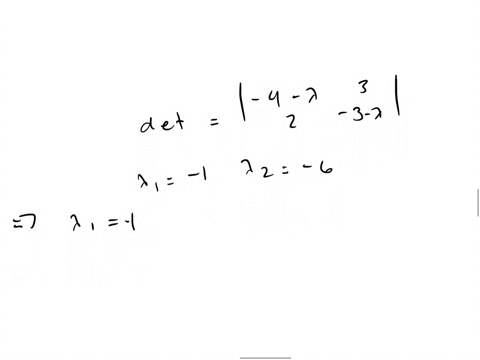 det = | -4 - λ  3 |
2  -3-λ
λ₁ = -1  λ₂ = -6
⇒ λ₁ = -1